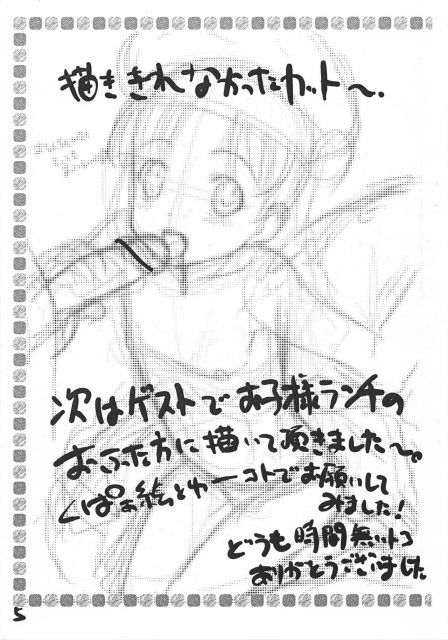 描ききれなかったカット〜.
次はゲストでお子様ランチの
おふた方に描いて頂きました〜。
くぱぁ絵とゆーコトでお願いして
みました!
どうも時間無いトコ
ありがとうございました
5